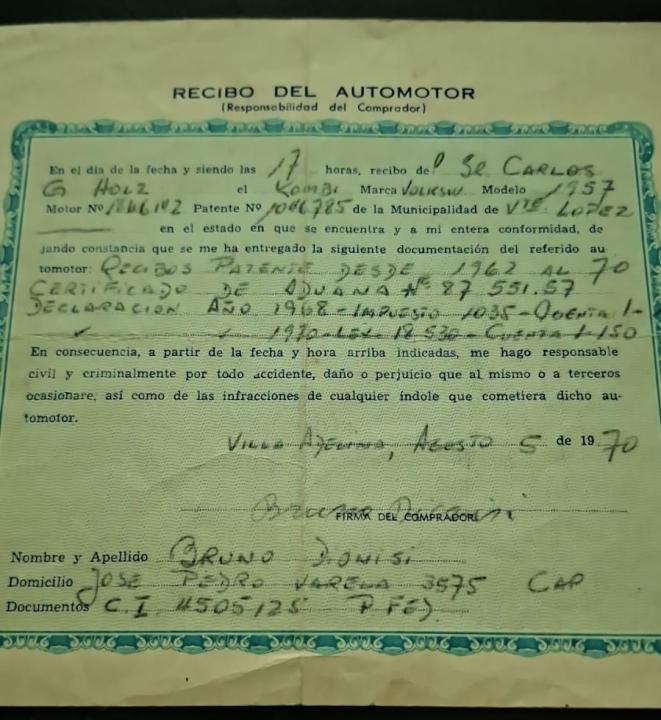 RECIBO DEL AUTOMOTOR
(Responsabilidad del Comprador)
En el día de la fecha y siendo las 17 horas, recibo del Sr CARLOS
G HOLZ el KOMBI Marca VOLKSW Modelo 1957
Motor Nº Patente Nº 1046785 de la Municipalidad de Vte LOPEZ
en el estado en que se encuentra y a mi entera conformidad, de
jando constancia que se me ha entregado la siguiente documentación del referido au-
tomotor: RECIBOS PATENTE DESDE 1962 AL 70
CERTIFICADO DE ADUANA Nº 87 551.57
DECLARACION AÑO 1968 - IMPUESTO 1035 - CUENTA 1-
1970 - LEY 18530 - CUENTA 1-150
En consecuencia, a partir de la fecha y hora arriba indicadas, me hago responsable
civil y criminalmente por todo accidente, daño o perjuicio que al mismo o a terceros
ocasionare, así como de las infracciones de cualquier índole que cometiera dicho au-
tomotor.
VILLA ADELINA, AGOSTO 5 de 1970
FIRMA DEL COMPRADOR
Nombre y Apellido BRUNO DIONISI
Domicilio JOSE PEDRO VARELA 3575 CAP
Documentos C.I. 4505125 P FED.